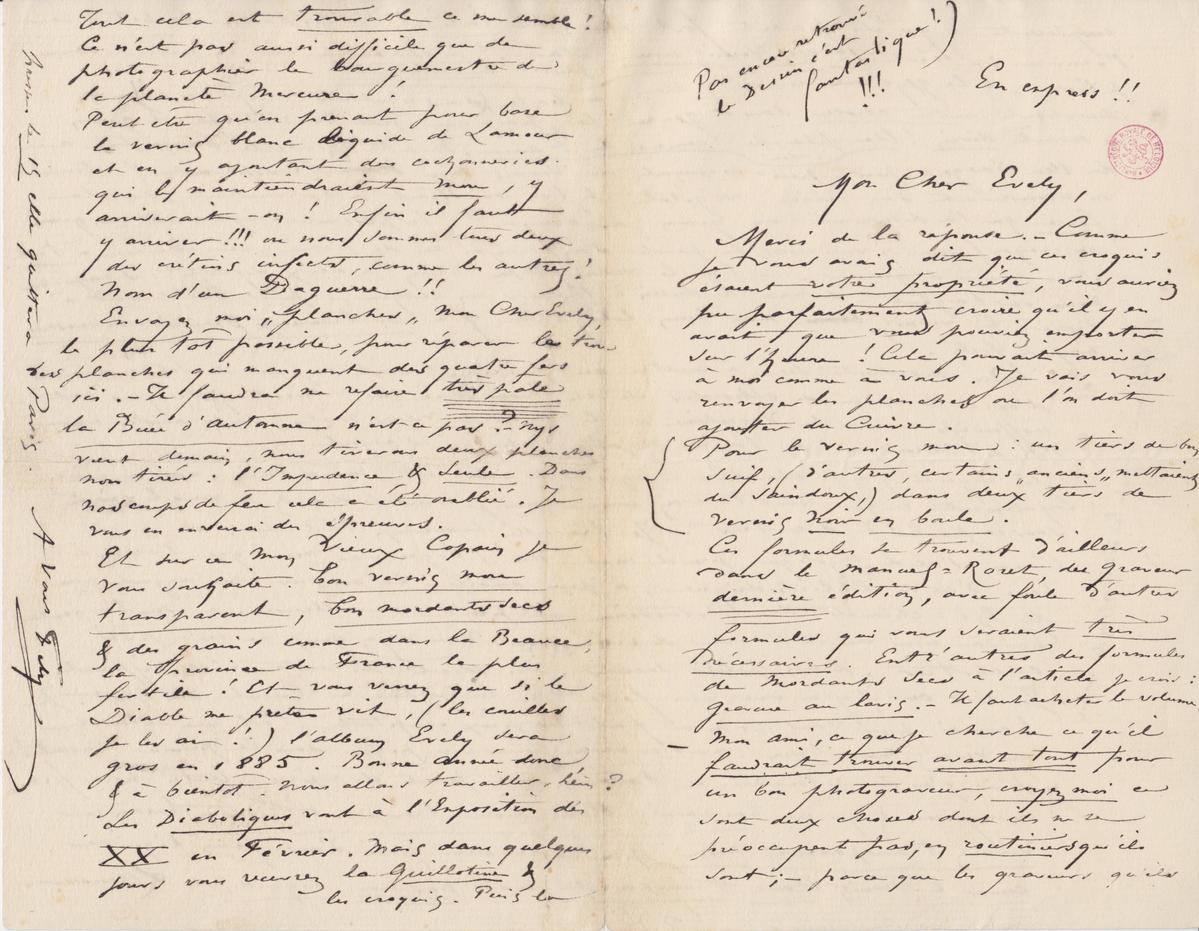 Pas encore retrouvé
le Dessin c'est
fantastique !)
!!!
En express !!
Mon Cher Evely,
Merci de la réponse. – Comme
je vous avais dit que ces croquis
étaient votre propriété, vous auriez
pu parfaitement croire qu'il y en
avait que vous pouviez emporter
sur l'heure ! Cela pouvait arriver
à moi comme à vous. Je vais vous
renvoyer les planches où l'on doit
ajouter du Cuivre.
Pour le vernis mou : un tiers de bon
suif, (d'autres, certains „anciens„ mettaient
du Saindoux,) dans deux tiers de
vernis noir en boule.
Ces formules se trouvent d'ailleurs
dans le manuel = Roret, du graveur
dernière édition, avec foule d'autres
formules qui vous seraient très
nécessaires. Entr'autres des formules
de Mordants secs à l'article je crois :
gravure au lavis. – Il faut acheter le volume
– Mon ami, ce que je cherche ce qu'il
faudrait trouver avant tout pour
un bon photograveur, croyez moi ce
sont deux choses dont ils ne se
préoccupent pas, en routiniers qu'ils
sont ; – parce que les graveurs qu'ils
Tout cela est trouvable ce me semble !
Ce n'est pas aussi difficile que de
photographier le bourgmestre de
la planète Mercure !
Peut etre qu'en prenant pour base
le vernis blanc liquide de Lamour
et en y ajoutant des cochonneries
qui le maintiendraient mou, y
arriverait-on ! Enfin il faut
y arriver !!! ou nous sommes tous deux
des crétins infects, comme les autres !
Nom d'un Daguerre !!
Envoyez moi „planches„ mon Cher Evely,
le plus tôt possible, pour réparer les trous
des planches qui manquent des quatre fers
ici. – Il faudra me refaire très pale
la Buée d'automne n'est-ce pas ? – Nys
vient demain, nous tirerons deux planches
non tirées : l'Impudence & Seule. Dans
nos coups de feu cela a été oublié. Je
vous en enverrai des épreuves.
Et sur ce mon Vieux Copain je
vous souhaite. bon vernis mou
transparent, bon mordants secs
& des grains comme dans la Beauce,
la province de France la plus
fertile ! Et vous verrez que si le
Diable me prête vit, (les couilles
je les ai !) l'album Evely sera
gros en 1885. Bonne année donc
& à bientôt. Nous allons travailler, hein ?
Les Diaboliques vont à l'Exposition des
XX en Février. Mais dans quelques
jours vous recevrez la Guillotine &
les croquis. Puis la
le 15 elle quittera Paris. A vous Fély